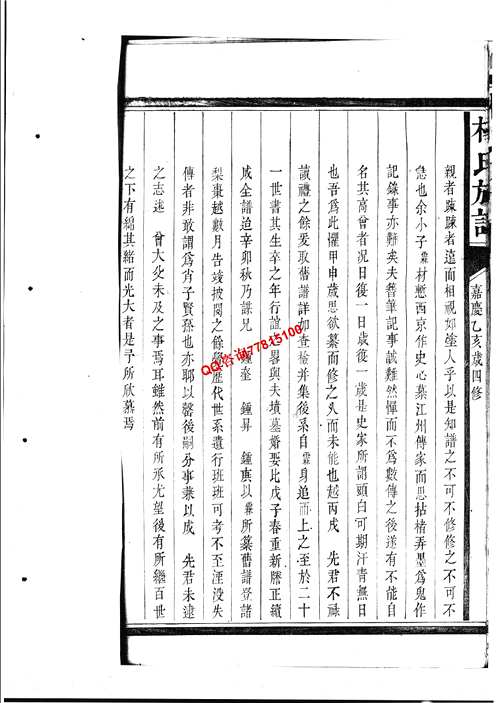 氏族譜
嘉慶乙亥歲四修
親者疎疎者遠而相視如塗人乎以是知譜之不可不修修之不可不
急也余小子材慙西京作史心慕江州傳家而思拈楮弄墨爲鬼作
記錄事亦難矣夫昔筆記事誠難然憚而不爲數傳之後遂有不能自
名其高曾者况日復一日歲復一歲是史家所謂頭白可期汗青無日
也吾爲此懼甲申歲思欲纂而修之久而未能也越丙戌 先君不祿
讀禮之餘爰取舊譜詳加查檢并集後系自身追而上之至於二十
一世書其生卒之年行誼之畧與夫墳墓婚娶比戊子春重新謄正續
成全譜迨辛卯秋乃謀兄 奎 鍾昇 鍾庚以所纂舊譜登諸
梨棗越數月告竣披閱之餘歷代世系遺行班班可考不至湮没失
傳者非敢謂爲肖子賢孫也亦耶以罄後嗣分事兼以成 先君未逮
之志述 曾大父未及之事焉耳雖然前有所承尤望後有所繼百世
之下有緜其緒而光大者是予所欣慕焉
QQ咨询77815100